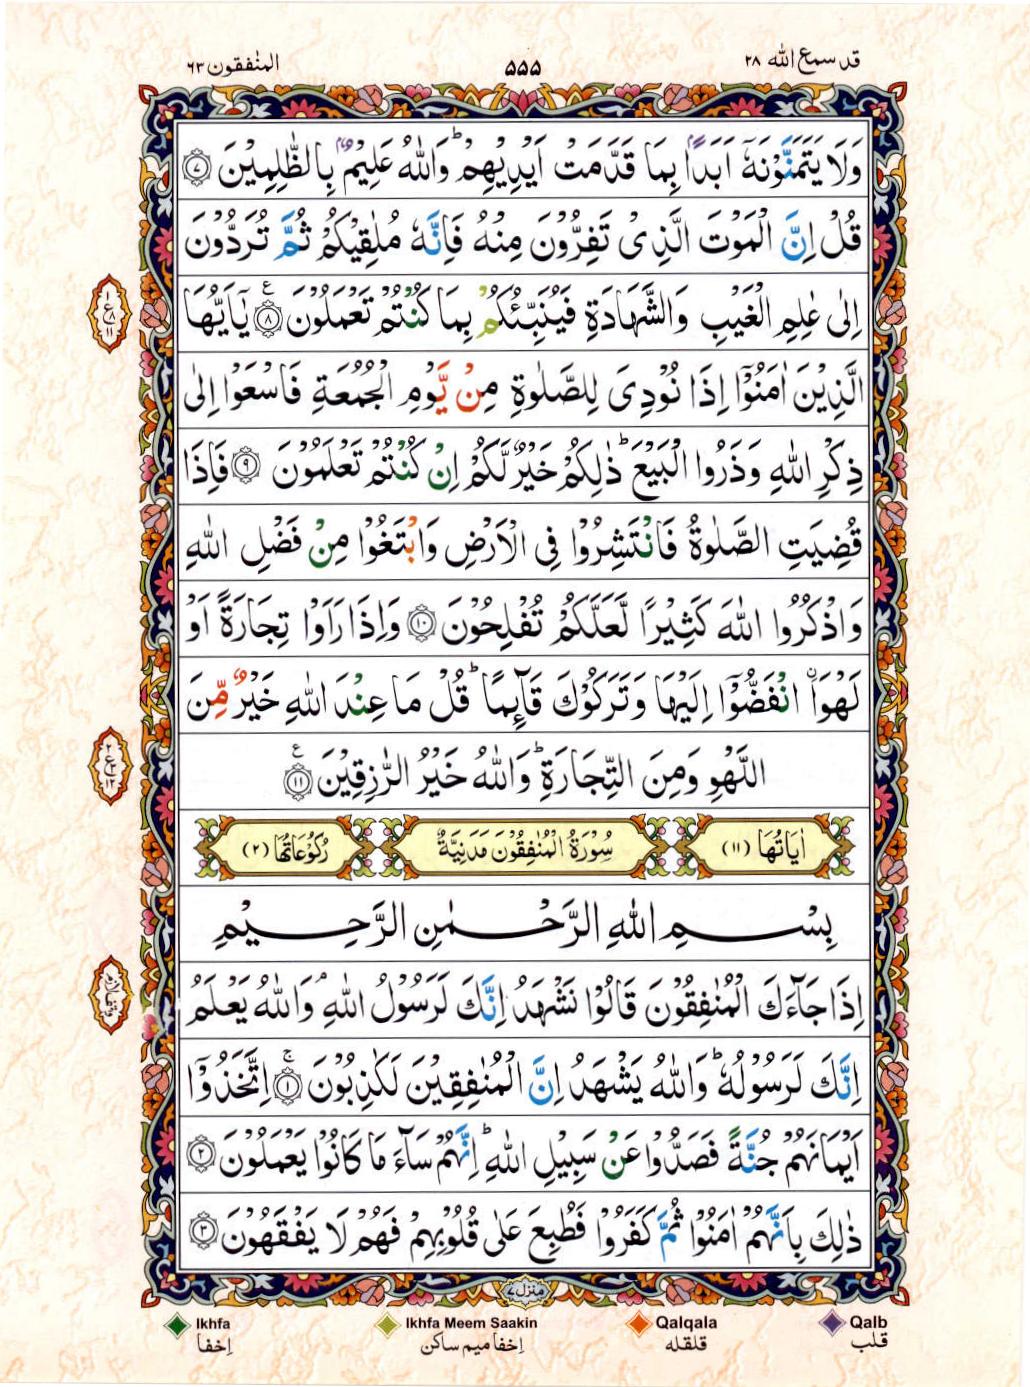 المنٰفقون ٦٣
۵۵۵
قد سمع الله ٢٨
وَلَا يَتَمَنَّوْنَهٗۤ اَبَدًۢا بِمَا قَدَّمَتْ اَيْدِيْهِمْ ؕ وَاللّٰهُ عَلِيْمٌۢ بِالظّٰلِمِيْنَ ۝٧
قُلْ اِنَّ الْمَوْتَ الَّذِىْ تَفِرُّوْنَ مِنْهُ فَاِنَّهٗ مُلٰقِيْكُمْ ثُمَّ تُرَدُّوْنَ
اِلٰى عٰلِمِ الْغَيْبِ وَالشَّهَادَةِ فَيُنَبِّئُكُمْ بِمَا كُنْتُمْ تَعْمَلُوْنَ ۝٨ ع يٰۤاَيُّهَا
الَّذِيْنَ اٰمَنُوْۤا اِذَا نُوْدِىَ لِلصَّلٰوةِ مِنْ يَّوْمِ الْجُمُعَةِ فَاسْعَوْا اِلٰى
ذِكْرِ اللّٰهِ وَذَرُوا الْبَيْعَ ؕ ذٰلِكُمْ خَيْرٌ لَّكُمْ اِنْ كُنْتُمْ تَعْلَمُوْنَ ۝٩ فَاِذَا
قُضِيَتِ الصَّلٰوةُ فَانْتَشِرُوْا فِى الْاَرْضِ وَابْتَغُوْا مِنْ فَضْلِ اللّٰهِ
وَاذْكُرُوا اللّٰهَ كَثِيْرًا لَّعَلَّكُمْ تُفْلِحُوْنَ ۝١٠ وَاِذَا رَاَوْا تِجَارَةً اَوْ
لَهْوَا۟ ۨانْفَضُّوْۤا اِلَيْهَا وَتَرَكُوْكَ قَآئِمًا ؕ قُلْ مَا عِنْدَ اللّٰهِ خَيْرٌ مِّنَ
اللَّهْوِ وَمِنَ التِّجَارَةِ ؕ وَاللّٰهُ خَيْرُ الرّٰزِقِيْنَ ۝١١ ع
اٰيَاتُهَا (١١)
سُوْرَةُ الْمُنٰفِقُوْنَ مَدَنِيَّةٌ
رُكُوْعَاتُهَا (٢)
بِسْمِ اللّٰهِ الرَّحْمٰنِ الرَّحِيْمِ
اِذَا جَآءَكَ الْمُنٰفِقُوْنَ قَالُوْا نَشْهَدُ اِنَّكَ لَرَسُوْلُ اللّٰهِ ۘ وَاللّٰهُ يَعْلَمُ
اِنَّكَ لَرَسُوْلُهٗ ؕ وَاللّٰهُ يَشْهَدُ اِنَّ الْمُنٰفِقِيْنَ لَكٰذِبُوْنَ ۝١ ۚ اِتَّخَذُوْۤا
اَيْمَانَهُمْ جُنَّةً فَصَدُّوْا عَنْ سَبِيْلِ اللّٰهِ ؕ اِنَّهُمْ سَآءَ مَا كَانُوْا يَعْمَلُوْنَ ۝٢
ذٰلِكَ بِاَنَّهُمْ اٰمَنُوْا ثُمَّ كَفَرُوْا فَطُبِعَ عَلٰى قُلُوْبِهِمْ فَهُمْ لَا يَفْقَهُوْنَ ۝٣
منزل ٧
Ikhfa
اِخفا
Ikhfa Meem Saakin
اِخفا میم ساکن
Qalqala
قلقله
Qalb
قلب